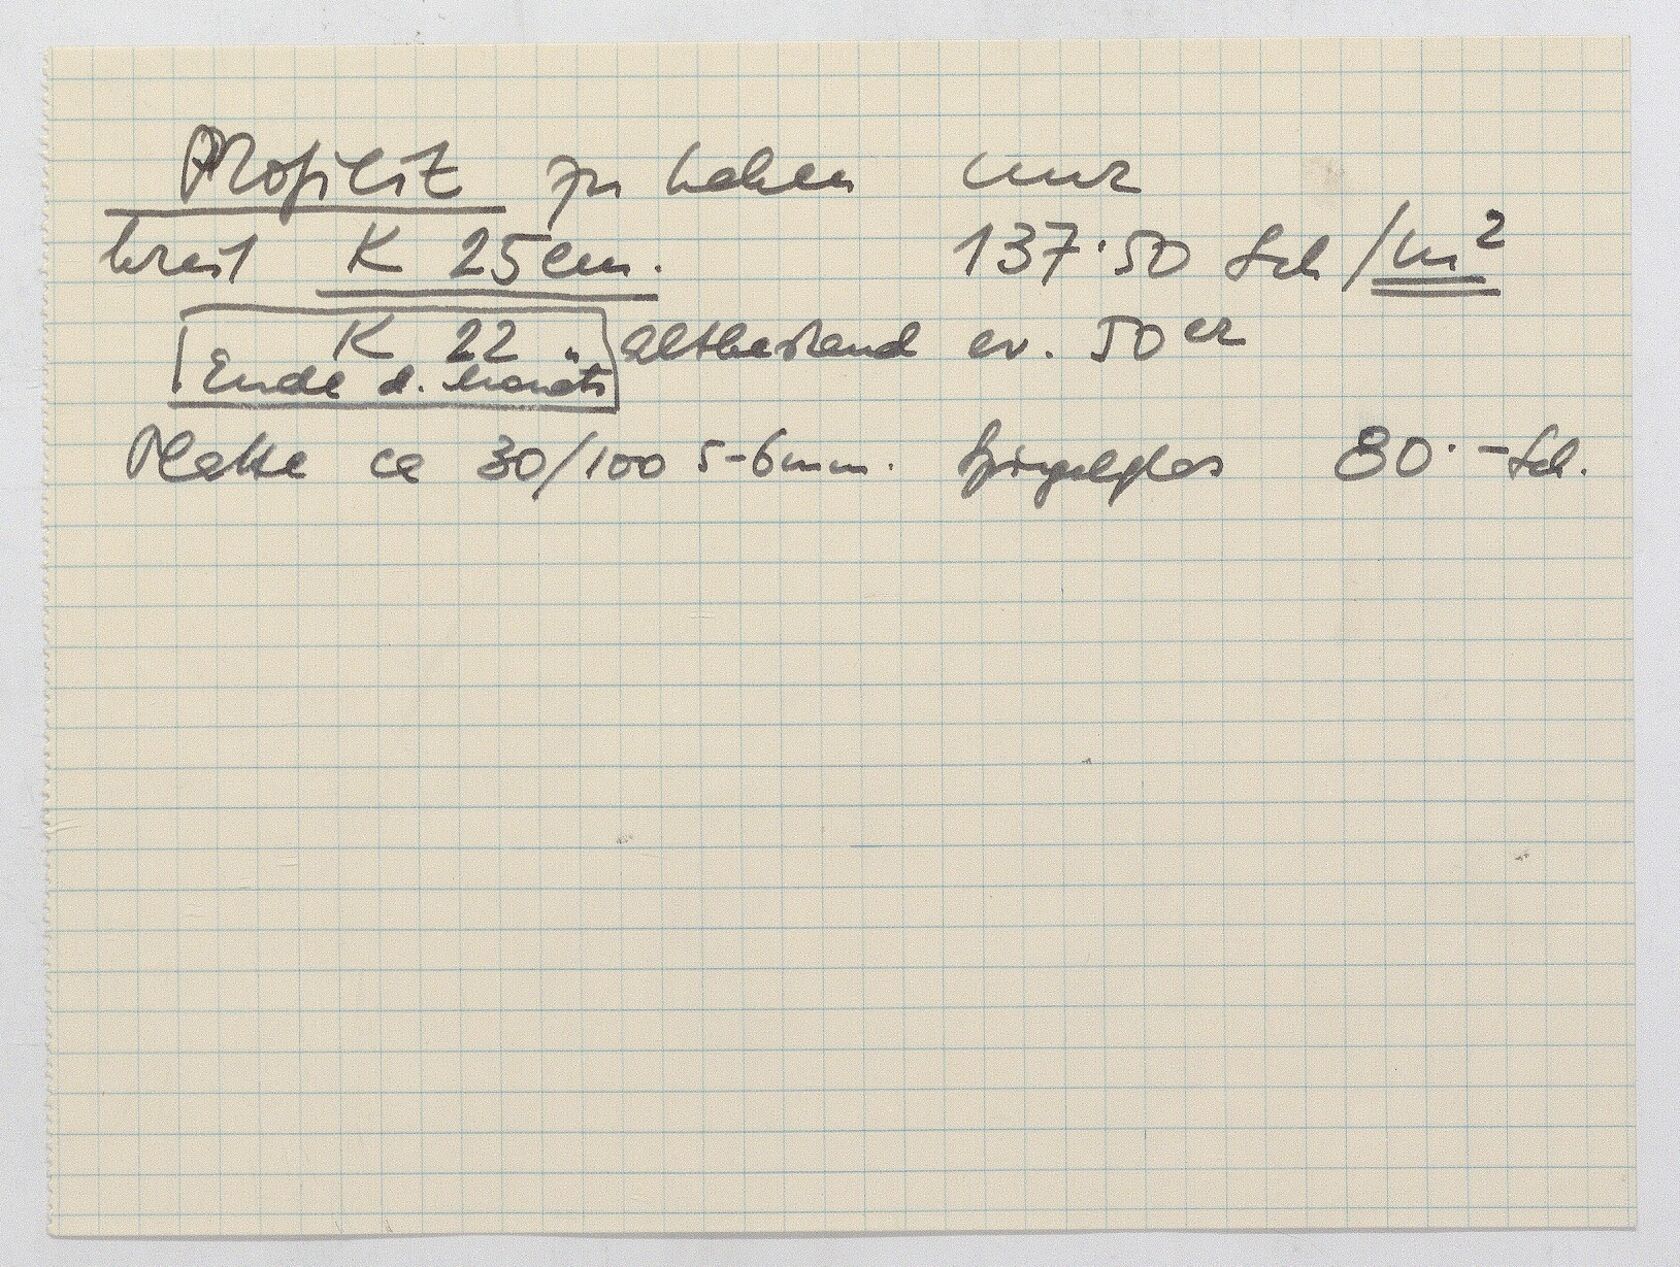 Profilit zu haben nur
breit K 25 cm. 137·50 Sch/m²
K 22 " Altbestand ev. 50er
Ende d. Monats
Platte ca 30/100 5-6mm. Spiegelglas 80.- Sch.